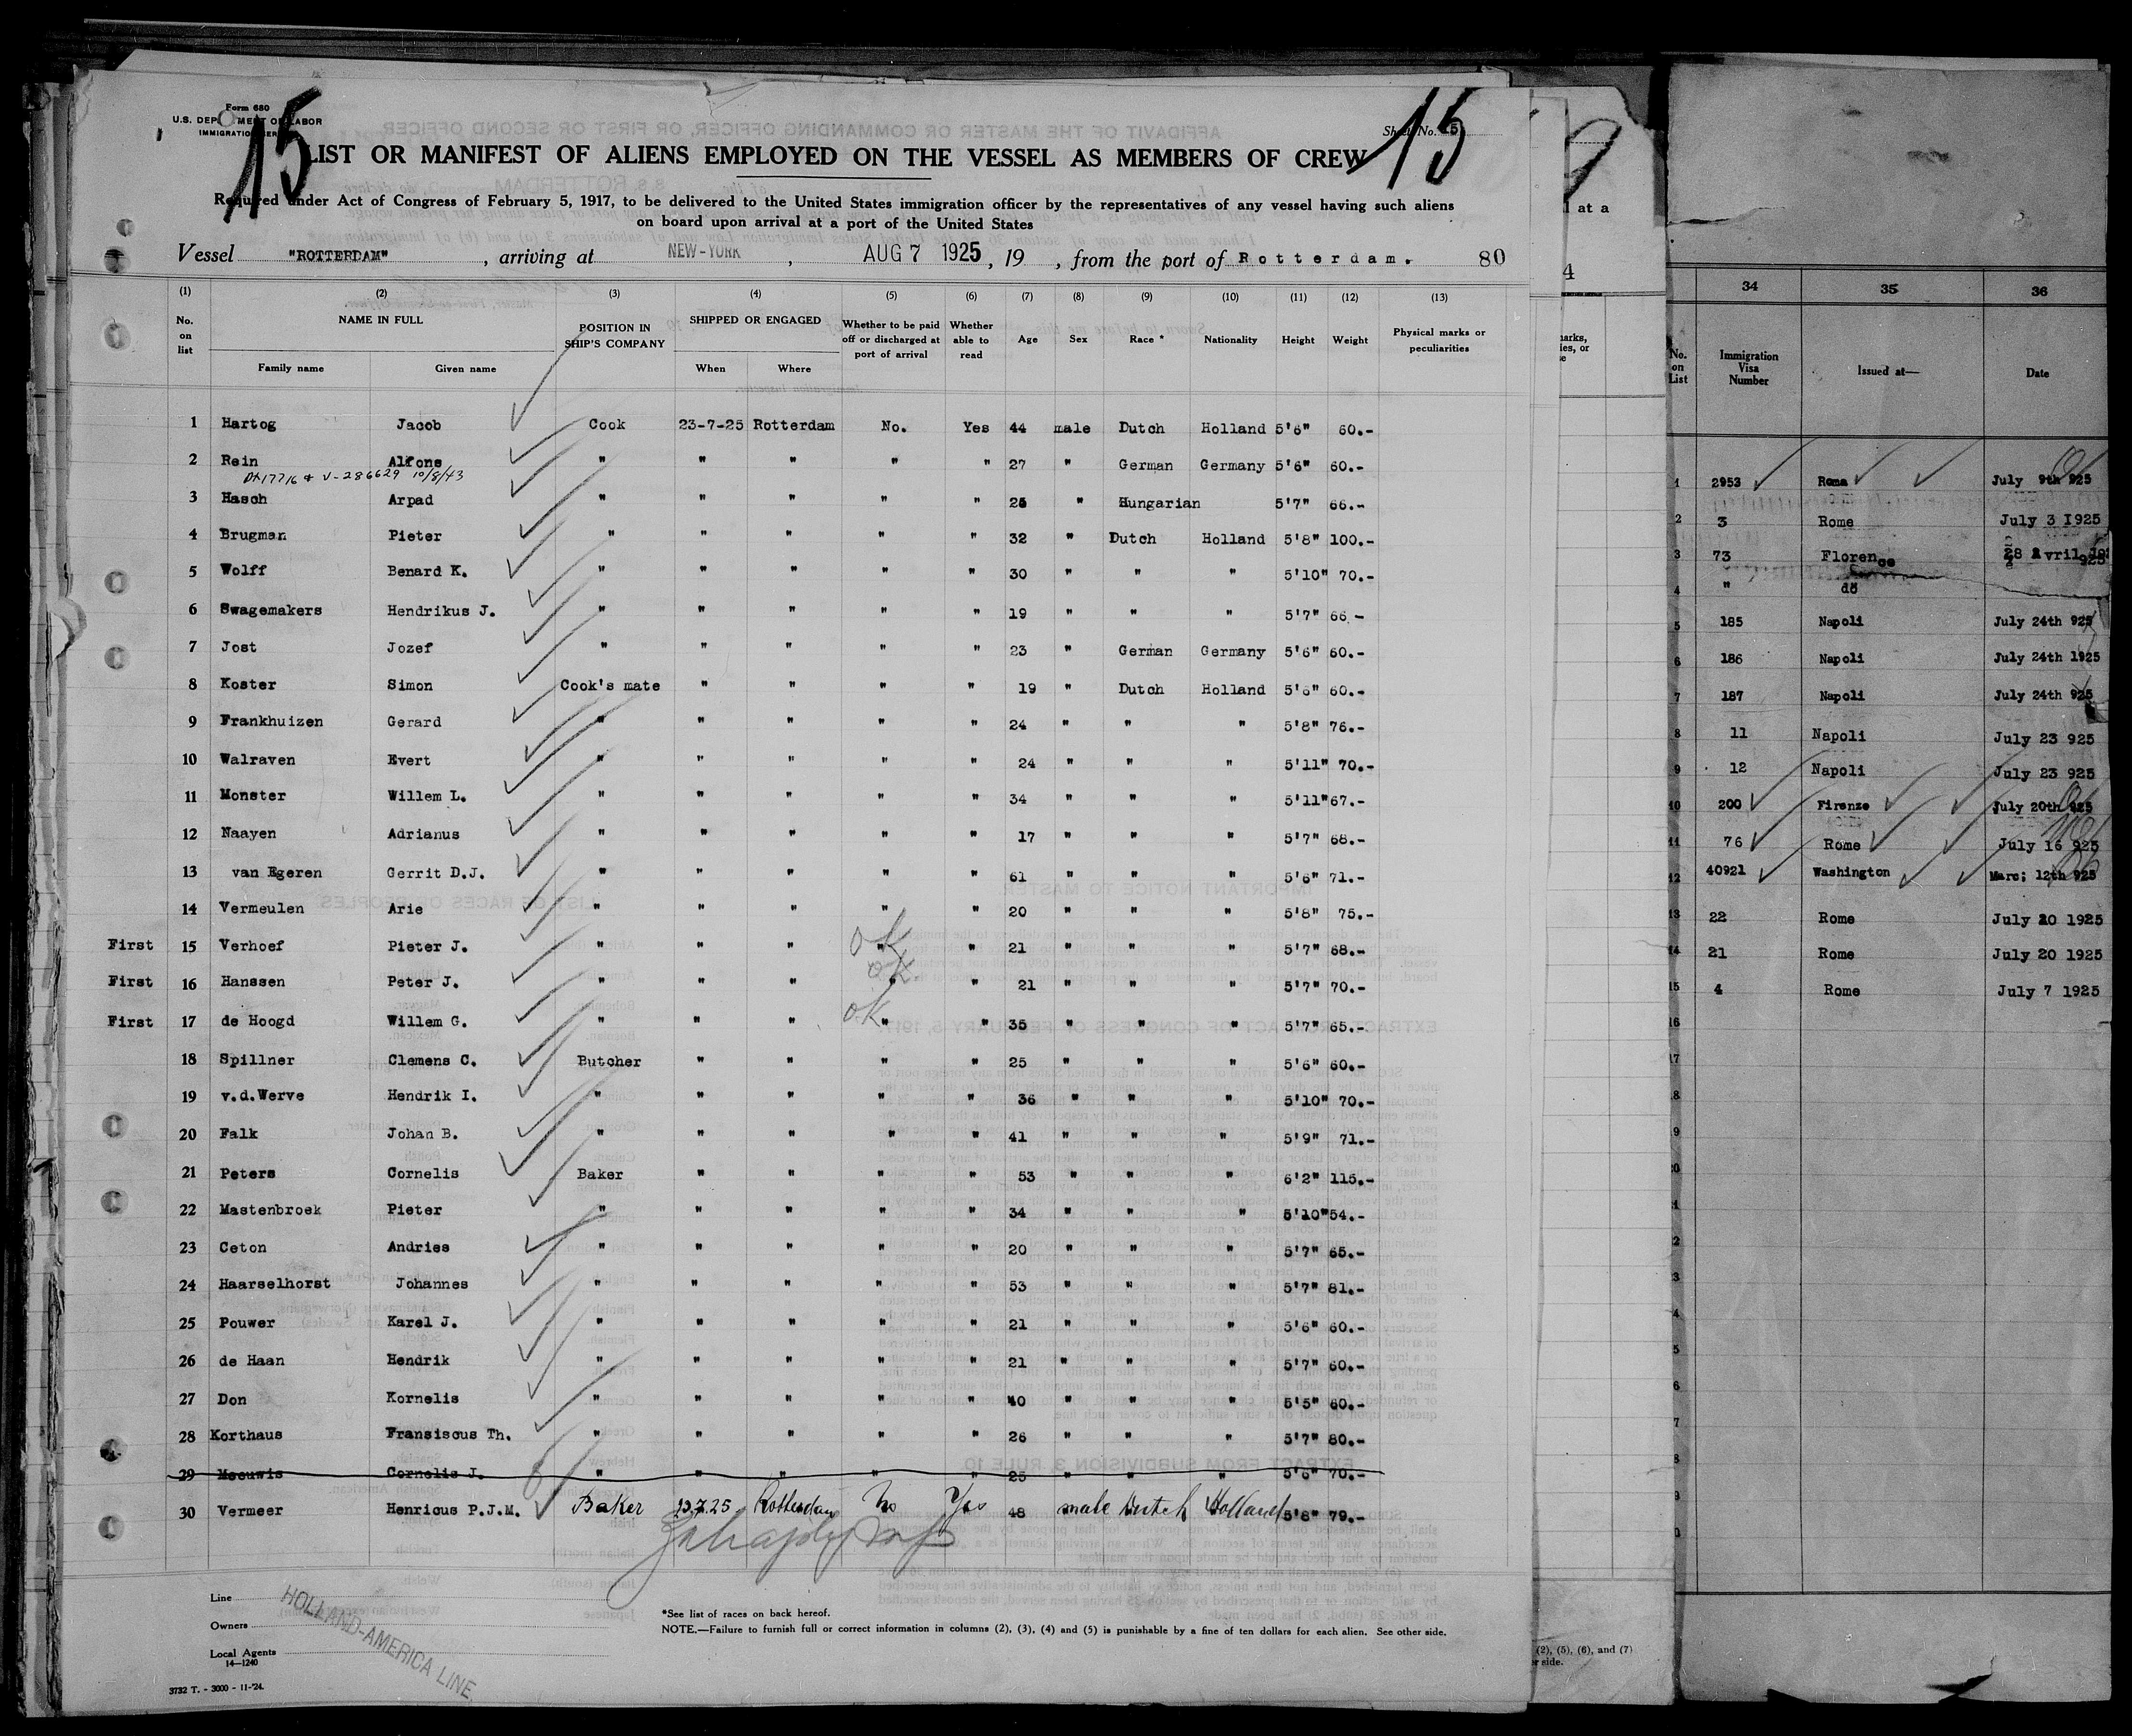 Form 680
U.S. DEP MENT OF LABOR
IMMIGRATION SER
15
15
Sheet No. 15
LIST OR MANIFEST OF ALIENS EMPLOYED ON THE VESSEL AS MEMBERS OF CREW
Required under Act of Congress of February 5, 1917, to be delivered to the United States immigration officer by the representatives of any vessel having such aliens
on board upon arrival at a port of the United States
Vessel "ROTTERDAM", arriving at NEW-YORK, AUG 7 1925, 19 , from the port of Rotterdam. 80
(1) (2) (3) (4) (5) (6) (7) (8) (9) (10) (11) (12) (13)
No. on list NAME IN FULL Family name Given name POSITION IN SHIP'S COMPANY SHIPPED OR ENGAGED When Where Whether to be paid off or discharged at port of arrival Whether able to read Age Sex Race * Nationality Height Weight Physical marks or peculiarities
1 Hartog Jacob Cook 23-7-25 Rotterdam No. Yes 44 male Dutch Holland 5'6" 60.-
2 Rein Alfons " " " " " 27 " German Germany 5'6" 60.-
17716 & V-286629 10/8/43
3 Hasch Arpad " " " " " 25 " Hungarian 5'7" 66.-
4 Brugman Pieter " " " " " 32 " Dutch Holland 5'8" 100.-
5 Wolff Benard K. " " " " " 30 " " " 5'10" 70.-
6 Swagemakers Hendrikus J. " " " " " 19 " " " 5'7" 66.-
7 Jost Jozef " " " " " 23 " German Germany 5'6" 60.-
8 Koster Simon Cook's mate " " " " 19 " Dutch Holland 5'6" 60.-
9 Frankhuizen Gerard " " " " " 24 " " " 5'8" 76.-
10 Walraven Evert " " " " " 24 " " " 5'11" 70.-
11 Monster Willem L. " " " " " 34 " " " 5'11" 67.-
12 Naayen Adrianus " " " " " 17 " " " 5'7" 68.-
13 van Egeren Gerrit D.J. " " " " " 61 " " " 5'6" 71.-
14 Vermeulen Arie " " " " " 20 " " " 5'8" 75.-
First 15 Verhoef Pieter J. " " " OK " " 21 " " " 5'7" 68.-
First 16 Hanssen Peter J. " " " OK " " 21 " " " 5'7" 70.-
First 17 de Hoogd Willem G. " " " OK " " 35 " " " 5'7" 65.-
18 Spillner Clemens C. Butcher " " " " 25 " " " 5'6" 60.-
19 v.d.Werve Hendrik I. " " " " " 36 " " " 5'10" 70.-
20 Falk Johan B. " " " " " 41 " " " 5'9" 71.-
21 Peters Cornelis Baker " " " " 53 " " " 6'2" 115.-
22 Mastenbroek Pieter " " " " " 34 " " " 5'10" 54.-
23 Ceton Andries " " " " " 20 " " " 5'7" 65.-
24 Haarselhorst Johannes " " " " " 53 " " " 5'7" 81.-
25 Pouwer Karel J. " " " " " 21 " " " 5'6" 60.-
26 de Haan Hendrik " " " " " 21 " " " 5'7" 60.-
27 Don Kornelis " " " " " 40 " " " 5'5" 60.-
28 Korthaus Fransiscus Th. " " " " " 26 " " " 5'7" 80.-
29 Meeuwis Cornelis J. " " " " " 25 " " " 5'6" 70.-
30 Vermeer Henricus P.J.M. Baker 23.7.25 Rotterdam No Yes 48 male Dutch Holland 5'8" 79.-
Line
Owners
Local Agents
14-1240
HOLLAND-AMERICA LINE
*See list of races on back hereof.
NOTE.—Failure to furnish full or correct information in columns (2), (3), (4) and (5) is punishable by a fine of ten dollars for each alien. See other side.
3732 T. - 3000 - 11-'24.
at a
4
(2), (5), (6), and (7)
side.
34 35 36
No. on List Immigration Visa Number Issued at— Date
1 2953 Roma July 9th 925
2 3 Rome July 3 1925
3 73 Florence 28 Avril 925
4 " do
5 185 Napoli July 24th 925
6 186 Napoli July 24th 1925
7 187 Napoli July 24th 925
8 11 Napoli July 23 925
9 12 Napoli July 23 925
10 200 Firenze July 20th 925
11 76 Rome July 16 925
12 40921 Washington Marc; 12th 925
13 22 Rome July 20 1925
14 21 Rome July 20 1925
15 4 Rome July 7 1925
16
17